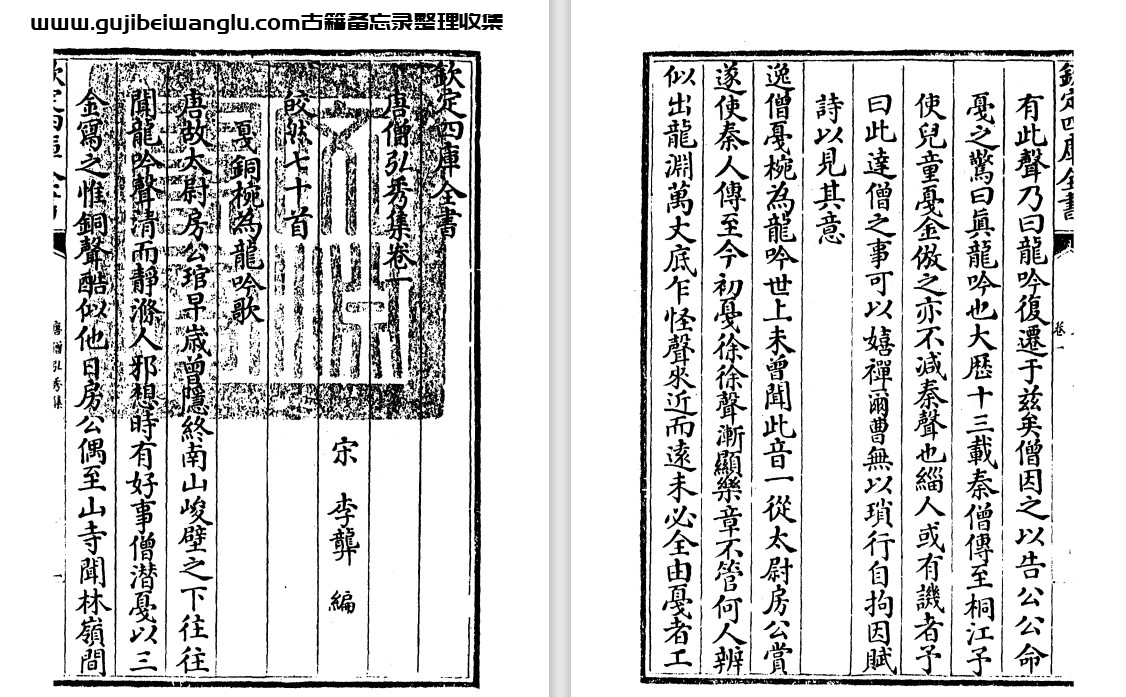 www.gujibeiwanglu.com古籍备忘录整理收集
欽定四庫全書
唐僧弘秀集卷一
宋 李龏 編
皎然七十首
戞銅椀為龍吟歌
唐故太尉房公琯早歲曾隱終南山峻壁之下往往
聞龍吟聲清而靜滌人邪想時有好事僧潛戞以三
金寫之惟銅聲酷似他日房公偶至山寺聞林嶺間
唐僧弘秀集
一
欽定四庫全書
卷一
有此聲乃曰龍吟復遷于兹矣僧因之以告公公命
戞之驚曰眞龍吟也大厯十三載秦僧傳至桐江予
使兒童戞金倣之亦不減秦聲也緇人或有譏者予
曰此達僧之事可以嬉禪爾曹無以瑣行自拘因賦
詩以見其意
逸僧戞椀為龍吟世上未曾聞此音一從太尉房公賞
遂使秦人傳至今初戞徐徐聲漸顯樂章不管何人辨
似出龍淵萬丈底乍怪聲來近而遠未必全由戞者工